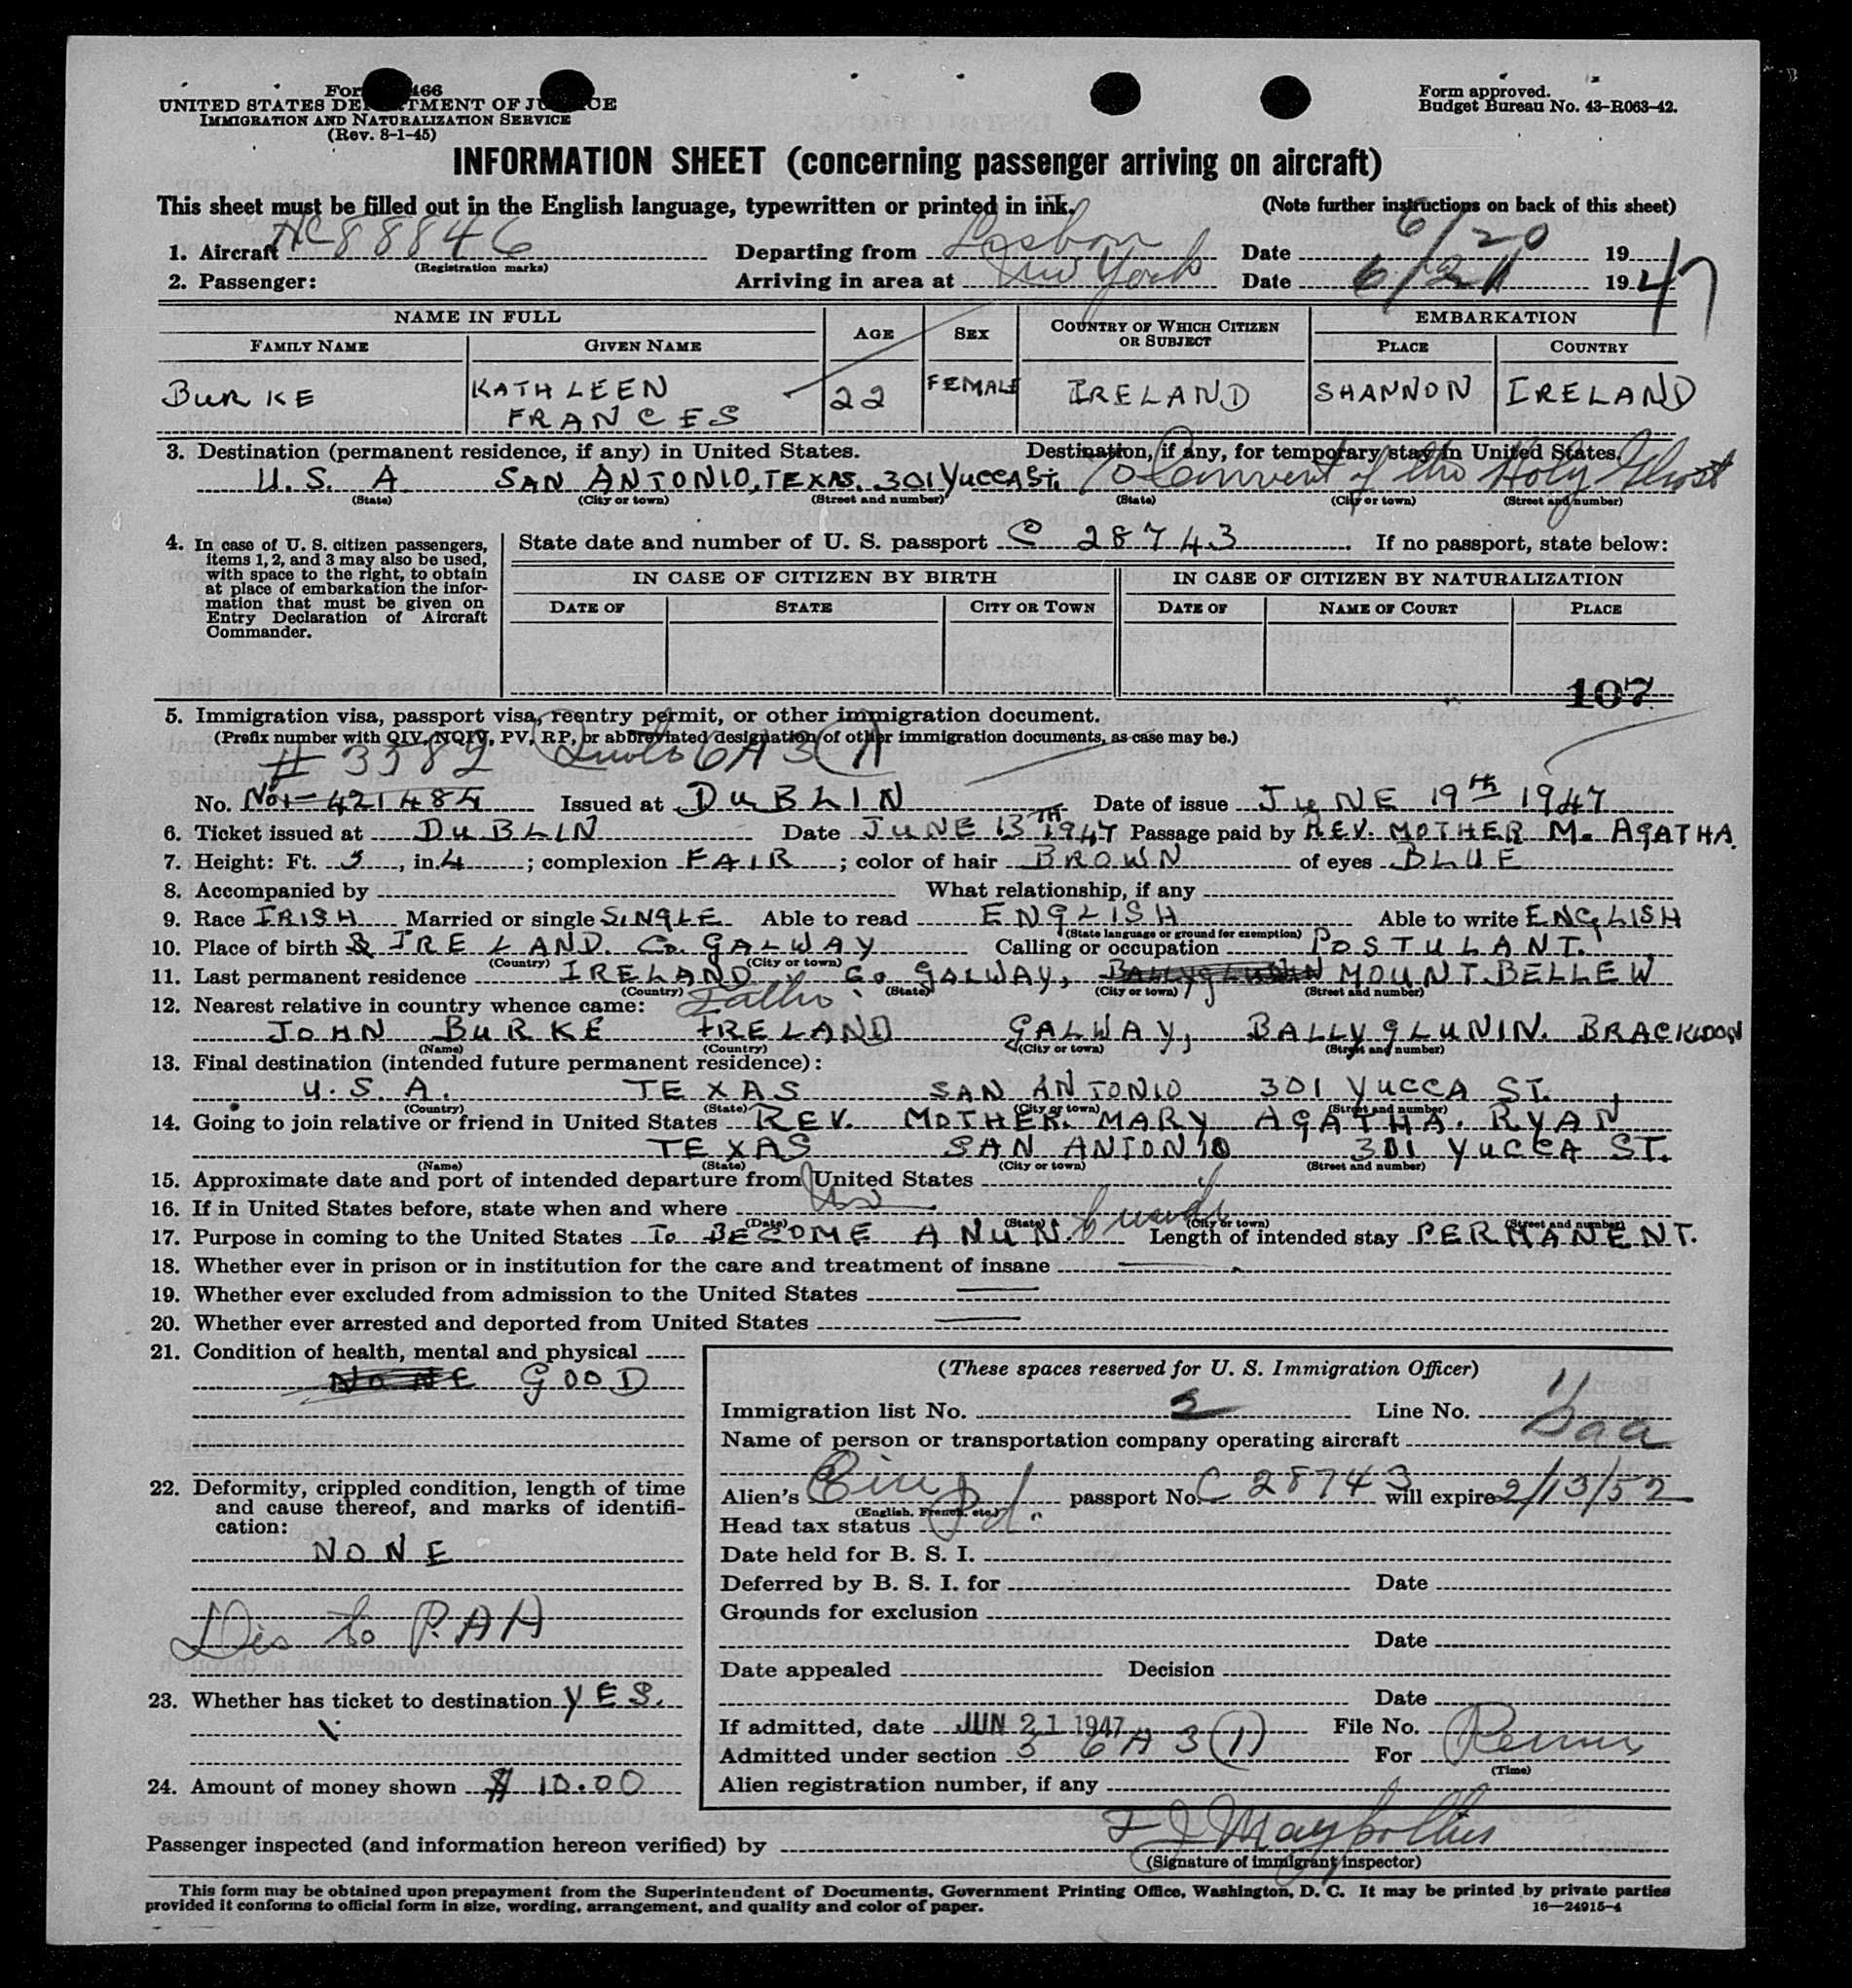 Form 466
UNITED STATES DEPARTMENT OF JUSTICE
IMMIGRATION AND NATURALIZATION SERVICE
(Rev. 8-1-45)
Form approved.
Budget Bureau No. 43-R063-42.
INFORMATION SHEET (concerning passenger arriving on aircraft)
This sheet must be filled out in the English language, typewritten or printed in ink.
(Note further instructions on back of this sheet)
1. Aircraft NC 88846 Departing from Lisbon Date 6/20 19
(Registration marks)
2. Passenger: Arriving in area at New York Date 6/21 1947
NAME IN FULL AGE SEX COUNTRY OF WHICH CITIZEN OR SUBJECT EMBARKATION
FAMILY NAME GIVEN NAME PLACE COUNTRY
BURKE KATHLEEN FRANCES 22 FEMALE IRELAND SHANNON IRELAND
3. Destination (permanent residence, if any) in United States. Destination, if any, for temporary stay in United States.
U. S. A SAN ANTONIO, TEXAS. 301 YUCCA St. % Convent of the Holy Ghost
(State) (City or town) (Street and number) (State) (City or town) (Street and number)
4. In case of U. S. citizen passengers,
items 1, 2, and 3 may also be used,
with space to the right, to obtain
at place of embarkation the infor-
mation that must be given on
Entry Declaration of Aircraft
Commander.
State date and number of U. S. passport C 28743. If no passport, state below:
IN CASE OF CITIZEN BY BIRTH IN CASE OF CITIZEN BY NATURALIZATION
DATE OF STATE CITY OR TOWN DATE OF NAME OF COURT PLACE
107
5. Immigration visa, passport visa, reentry permit, or other immigration document.
(Prefix number with QIV, NQIV, PV, RP, or abbreviated designation of other immigration documents, as case may be.)
# 3582 Quota 6A3(1)
No. No:- 421485 Issued at DUBLIN Date of issue JUNE 19th 1947
6. Ticket issued at DUBLIN Date JUNE 13TH 1947 Passage paid by REV. MOTHER M. AGATHA.
7. Height: Ft. 5, in. 4; complexion FAIR; color of hair BROWN of eyes BLUE
8. Accompanied by What relationship, if any
9. Race IRISH Married or single SINGLE Able to read ENGLISH Able to write ENGLISH
(State language or ground for exemption)
10. Place of birth IRELAND. Co. GALWAY Calling or occupation POSTULANT.
(Country) (City or town)
11. Last permanent residence IRELAND Co GALWAY, MOUNT.BELLEW
(Country) (State) (City or town) (Street and number)
12. Nearest relative in country whence came: Father
JOHN BURKE IRELAND GALWAY, BALLYGLUNIN. BRACKLOON
(Name) (Country) (City or town) (Street and number)
13. Final destination (intended future permanent residence):
U. S. A. TEXAS SAN ANTONIO 301 YUCCA ST.
(Country) (State) (City or town) (Street and number)
14. Going to join relative or friend in United States REV. MOTHER. MARY AGATHA. RYAN
TEXAS SAN ANTONIO 301 YUCCA ST.
(Name) (State) (City or town) (Street and number)
15. Approximate date and port of intended departure from United States
16. If in United States before, state when and where
(Date) (State) (City or town) (Street and number)
17. Purpose in coming to the United States TO BECOME A NUN. Length of intended stay PERMANENT.
18. Whether ever in prison or in institution for the care and treatment of insane —
19. Whether ever excluded from admission to the United States —
20. Whether ever arrested and deported from United States —
21. Condition of health, mental and physical
NONE GOOD
22. Deformity, crippled condition, length of time
and cause thereof, and marks of identifi-
cation:
NONE
Dis to P.A.A
23. Whether has ticket to destination YES.
24. Amount of money shown $ 10.00
(These spaces reserved for U. S. Immigration Officer)
Immigration list No. 2 Line No. 11
Name of person or transportation company operating aircraft Paa
Alien's passport No. C 28743 will expire 2/13/52
(English, French, etc.)
Head tax status Pd.
Date held for B. S. I.
Deferred by B. S. I. for Date
Grounds for exclusion
Date
Date appealed Decision
Date
If admitted, date JUN 21 1947 File No.
Admitted under section 3 6A3(1) For Perm
(Time)
Alien registration number, if any
Passenger inspected (and information hereon verified) by
(Signature of immigrant inspector)
This form may be obtained upon prepayment from the Superintendent of Documents, Government Printing Office, Washington, D. C. It may be printed by private parties
provided it conforms to official form in size, wording, arrangement, and quality and color of paper.
16—24915-4